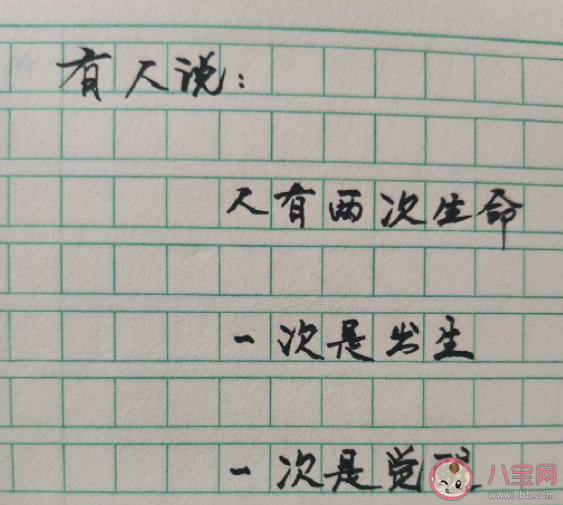 有人说：
人有两次生命
一次是出生
一次是觉
八宝网
www.8bb.com